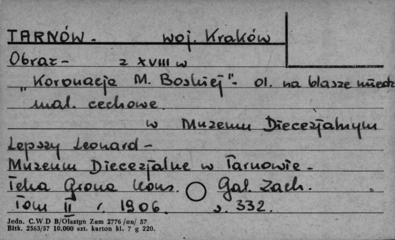 TARNÓW - woj. Kraków
Obraz - z XVIII w
"Koronacja M. Boskiej" - ol. na blasze miedz
mal. cechowe
w Muzeum Diecezjalnym
Lepszy Leonard -
Muzeum Diecezjalne w Tarnowie -
Teka Grona Kons. Gal. Zach.
Tom II r. 1906 s. 332.
Jedn. C.W.D B/Olsztyn Zam 2776/aa/ 57
Bltk. 2563/57 10.000 szt. karton kl. 7 g 220.